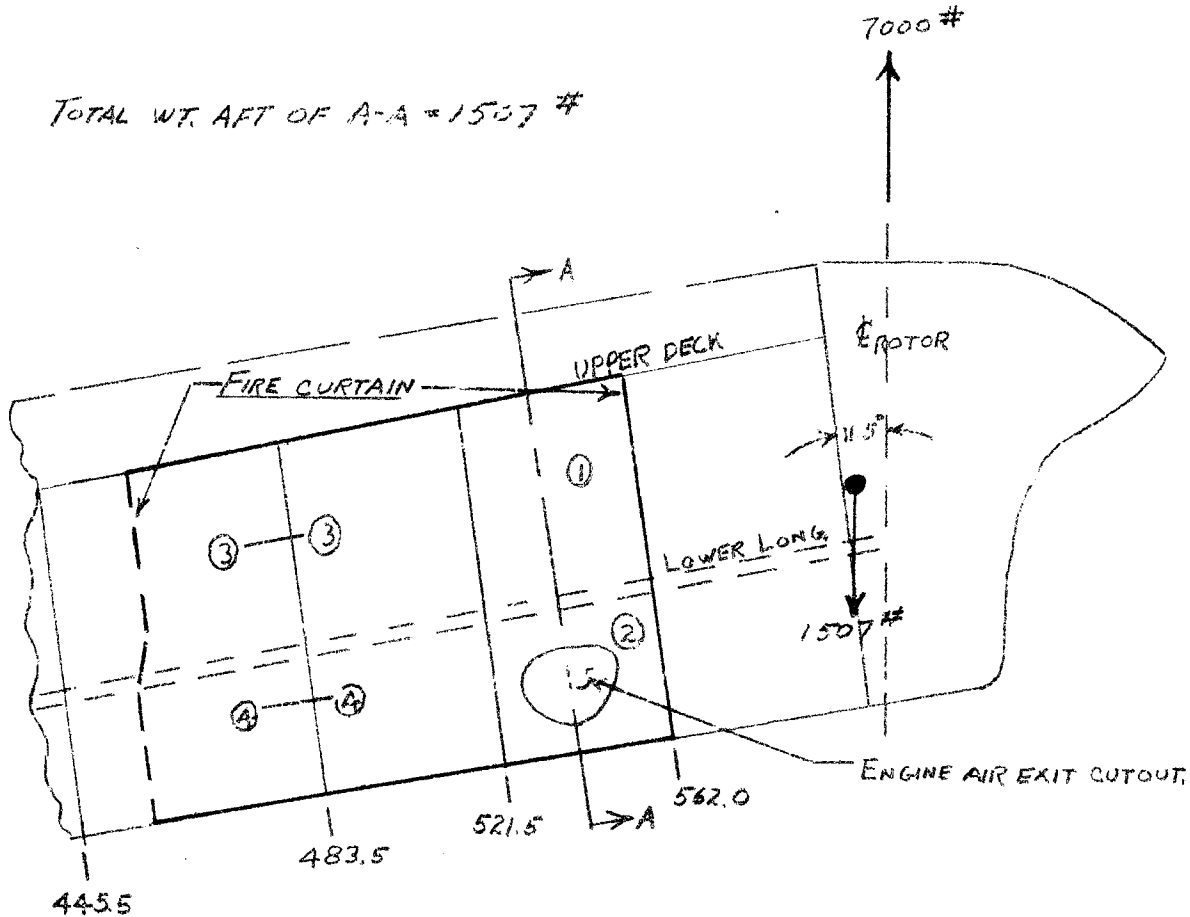 7000 #
TOTAL WT. AFT OF A-A = 1507 #
A
UPPER DECK
℄ ROTOR
FIRE CURTAIN
11.5°
①
③ ③
LOWER LONG.
②
1507 #
④ ④
ENGINE AIR EXIT CUTOUT.
562.0
A
521.5
483.5
445.5